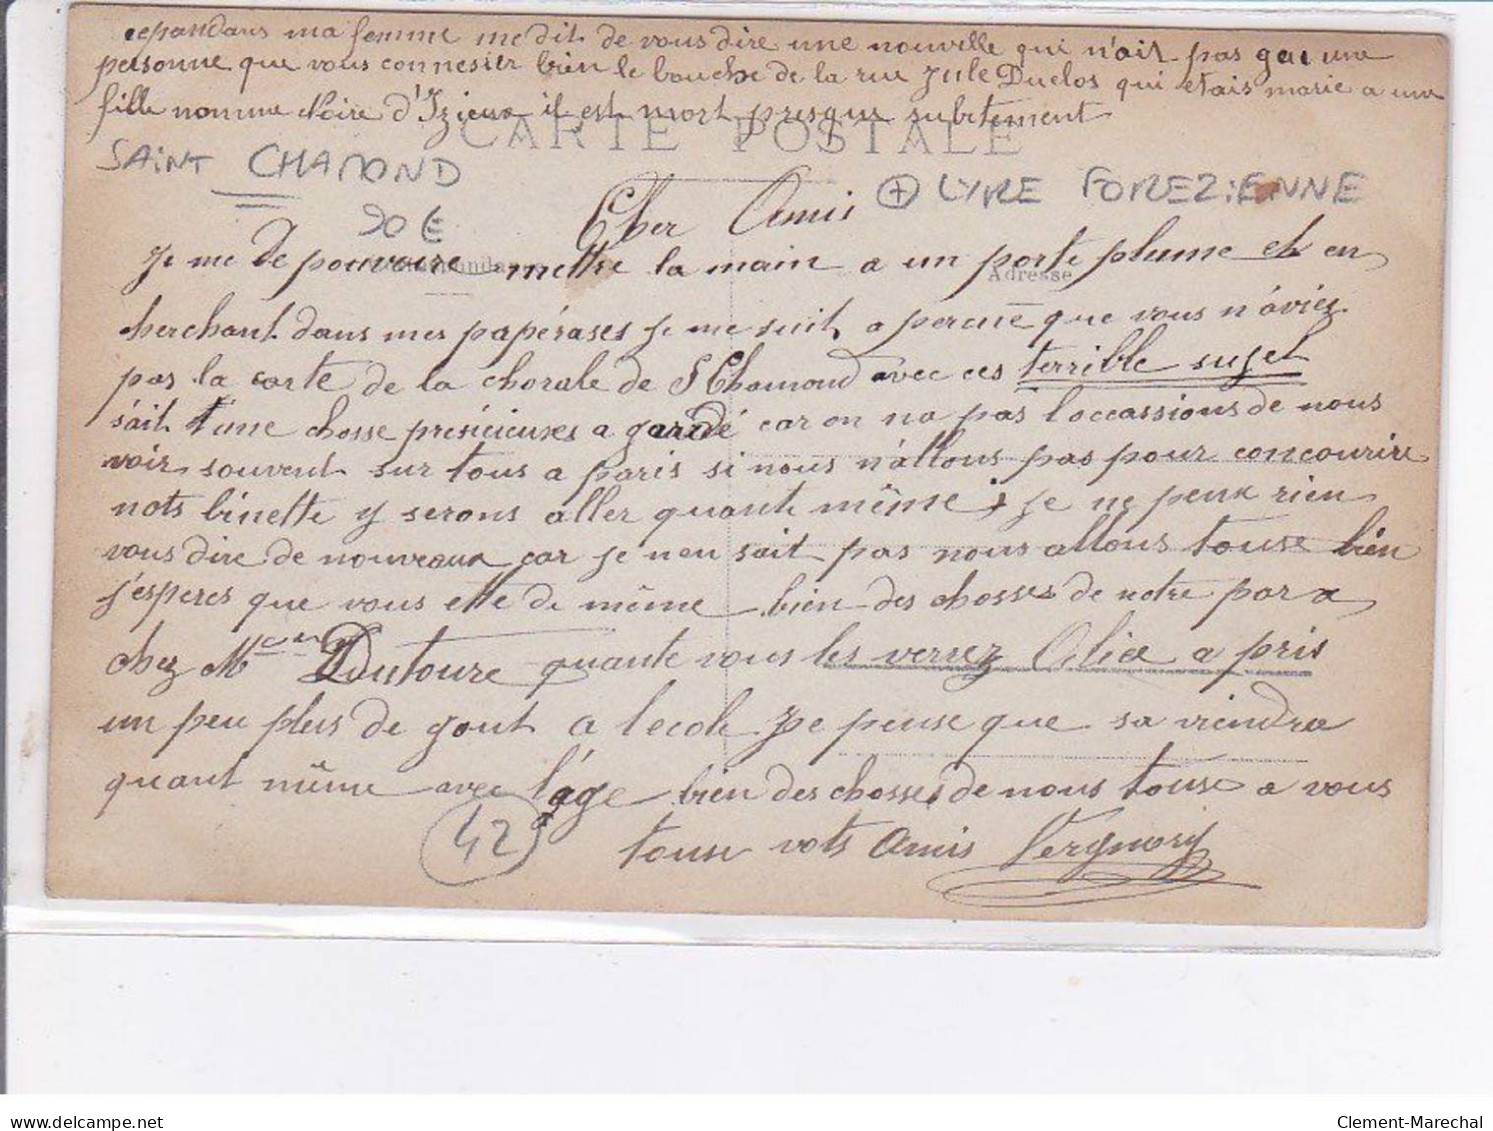 cepandans ma femme me dit de vous dire une nouvelle qui n'ait pas gai une
personne que vous connesiér bien le bouche de la rue Jule Duclos qui etais marie a une
fille nomme Noire d'Izieux il est mort presque subitement
CARTE POSTALE
SAINT CHAMOND
+ LYRE FOREZIENNE
90€
Cher Amis
Correspondance
Adresse
Je me De pouvoire mettre la main a un porte plume et en
cherchant dans mes papérases je me suit apercue que vous n'aviez
pas la carte de la chorale de St Chamond avec ces terrible sujet
s'ait t une chosse présicieuses a gardé car on na pas l'occassions de nous
voir souvent sur tous a paris si nous n'allons pas pour concourire
nots binette y serons aller quante même ; je ne peux rien
vous dire de nouveaux car je n'en sait pas nous allons touse bien
j'esperes que vous ette de même bien des chosses de notre par a
chez Mr Dutoure quante vous les verrez Alice a pris
un peu plus de gout a lecole je pense que sa viendra
quant même avec l'age bien des chosses de nous touse a vous
touse vots Amis Vergnory
42
Clement-Marechal
www.delcampe.net